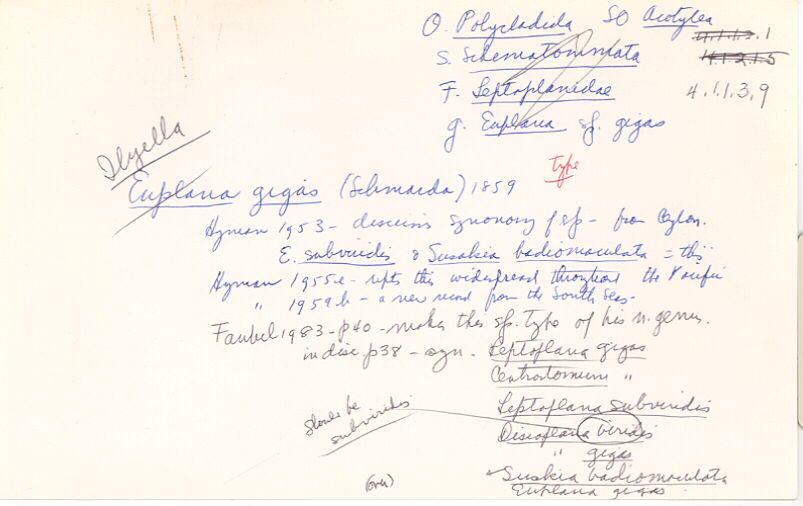 O. Polycladida SO Acotylea
4.1.1.2.1
S. Schematommata 4.1.2.1.5
F. Leptoplanidae 4.1.1.3.9
g. Euplana sp. gigas
Ilyella
type
Euplana gigas (Schmarda) 1859
Hyman 1953 - discusses synonomy of sp - from Ceylon.
E. subviridis & Susakia badiomaculata = this
Hyman 1955e - repts this widespread throughout the Pacific
" 1959b - a new record from the South Seas -
Faubel 1983 - p40 - makes this sp. type of his n. genus.
in disc p38 - syn. Leptoplana gigas
Centrostomum "
Leptoplana subviridis
should be subviridis
Discoplana viridis
" gigas
Suskia badiomaculata
Euplana gigas
(over)